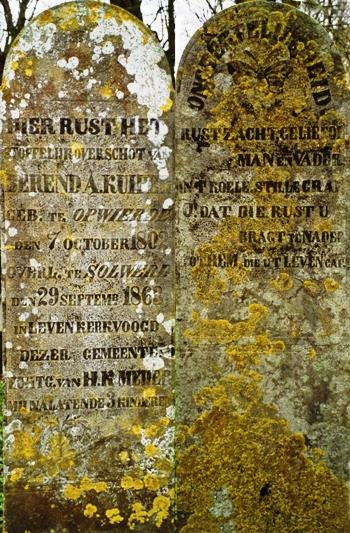 HIER RUST HET
STOFFELIJK OVERSCHOT VAN
BEREND A.
GEB. TE OPWIERDE
DEN 7 OCTOBER
OVERL. TE SOLWERD
DEN 29 SEPTEMB. 1863
IN LEVEN KERKVOOGD
DEZER GEMEENTE
ECHTG. VAN H.H. MEDE
MIJ NALATENDE 3 KINDEREN
ONSTERFELIJKHEID
RUST ZACHT, GELIEFDE
MAN EN VADER
KOELE, STILLE GRAF
O! DAT DIE RUST U
BRAGT TE NADER
TOT HEM, DIE U 'T LEVEN GAF